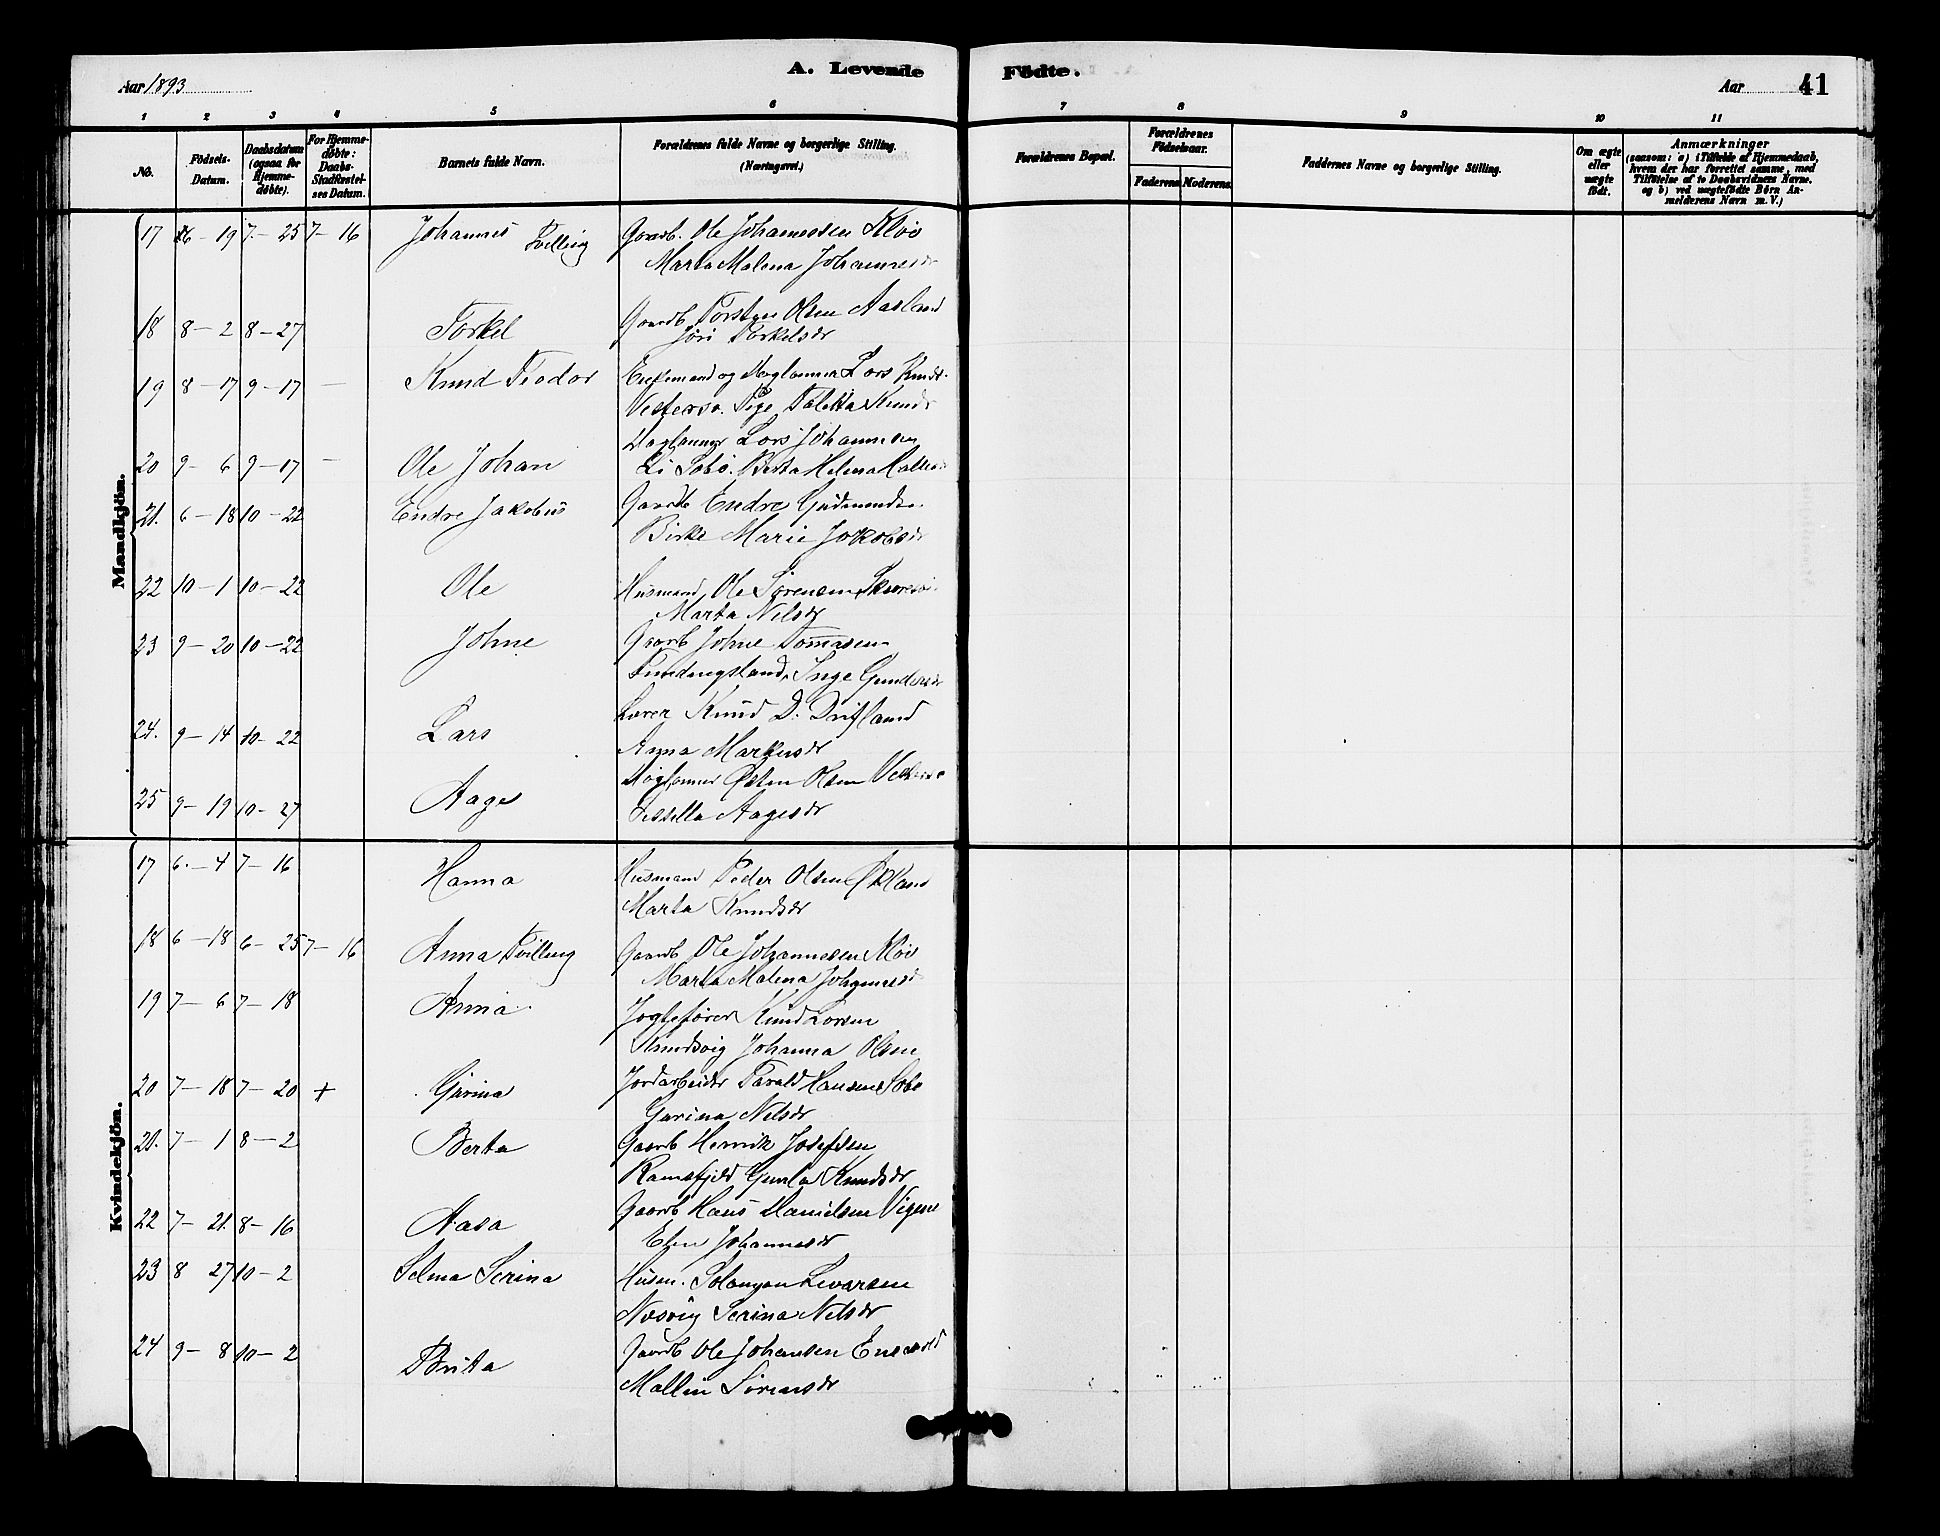 Aar 1893
A. Levende
Födte.
Aar 41
1 2 3 4 5 6 7 8 9 10 11
No.
Födsels-Datum.
Daabsdatum (ogsaa for Hjemme-döbte).
For Hjemme-döbte: Daabs-Stadfæstel-ses Datum.
Barnets fulde Navn.
Forældrenes fulde Navne og borgerlige Stilling. (Næringsvei.)
Forældrenes Bopæl.
Forældrenes Födselsaar.
Faderens Moderens
Faddernes Navne og borgerlige Stilling.
Om ægte eller uægte födt.
Anmærkninger
(saasom: a) i Tilfælde af Hjemmedaab, hvem der har forrettet samme, med Tilføielse af to Daabsvidners Navne, og b) ved uægtefødte Börn Anmelderens Navn m. V.)
Mandkjön.
17 6-19 7-25 7-16 Johannes Tvilling Gaardb. Ole Johannessen Kløv
Marta Malena Johannesdr
18 8-2 8-27 Torkel Gaardb Torsten Olsen Aasland
Jöri Torkelsdr
19 8-17 9-17 — Knud Teodor Enkemand og Daglønner Lars Knuds.
Vestersø. Pige Taletta Knudsdr
20 9-6 9-17 — Ole Johan Daglønner Lars Johannsen
Li Søbø. Berta Helena
21. 6-18 10-22 Endre Jakobus Gaardb Endre Gudmundsen
Birke Marie Jakobsdr
22 10-1 10-22 Ole Husmand Ole Sørensen
Marta Nelsdr
23 9-20 10-22 Johne Gaardb Johne Tomasen
Tundingsland, Inge Gundersdr
24. 9-14 10-22 Lars Lærer Knud D. Drifland
Anna Markusdr
25 9-19 10-27 Aage Daglønner Østen Olsen Vestersø
Sessella Aagesdr
Kvindekjön.
17 6-4 7-16 Hanna Husmand Peder Olsen Økland
Marta Knudsdr
18 6-18 6-25 7-16 Anna Tvilling Gaardb Ole Johannesen Kløv
Marta Malena Johannesdr
19 7-6 7-18 Anna Jagtefører Knud Larsen
Knudsvig Johanna Olsen
20 7-18 7-20 + Gurina Jordarbeider Tarald Hansen Søbø
Gurina Nelsdr
21. 7-1 8-2 Berta Gaardb Henrik Josefsen
Ramsfjeld Gunla Knudsdr
22 7-21. 8-16 Aasa Gaardb Hans Danielsen Vigene
Elen Johannesdr
23 8 27 10-2 Selma Serina Husm. Salamon Sevarsen
Nesvig Serina Nelsdr
24 9-8 10-2 Brita Gaardb Ole Johansen
Mallin Sörensdr